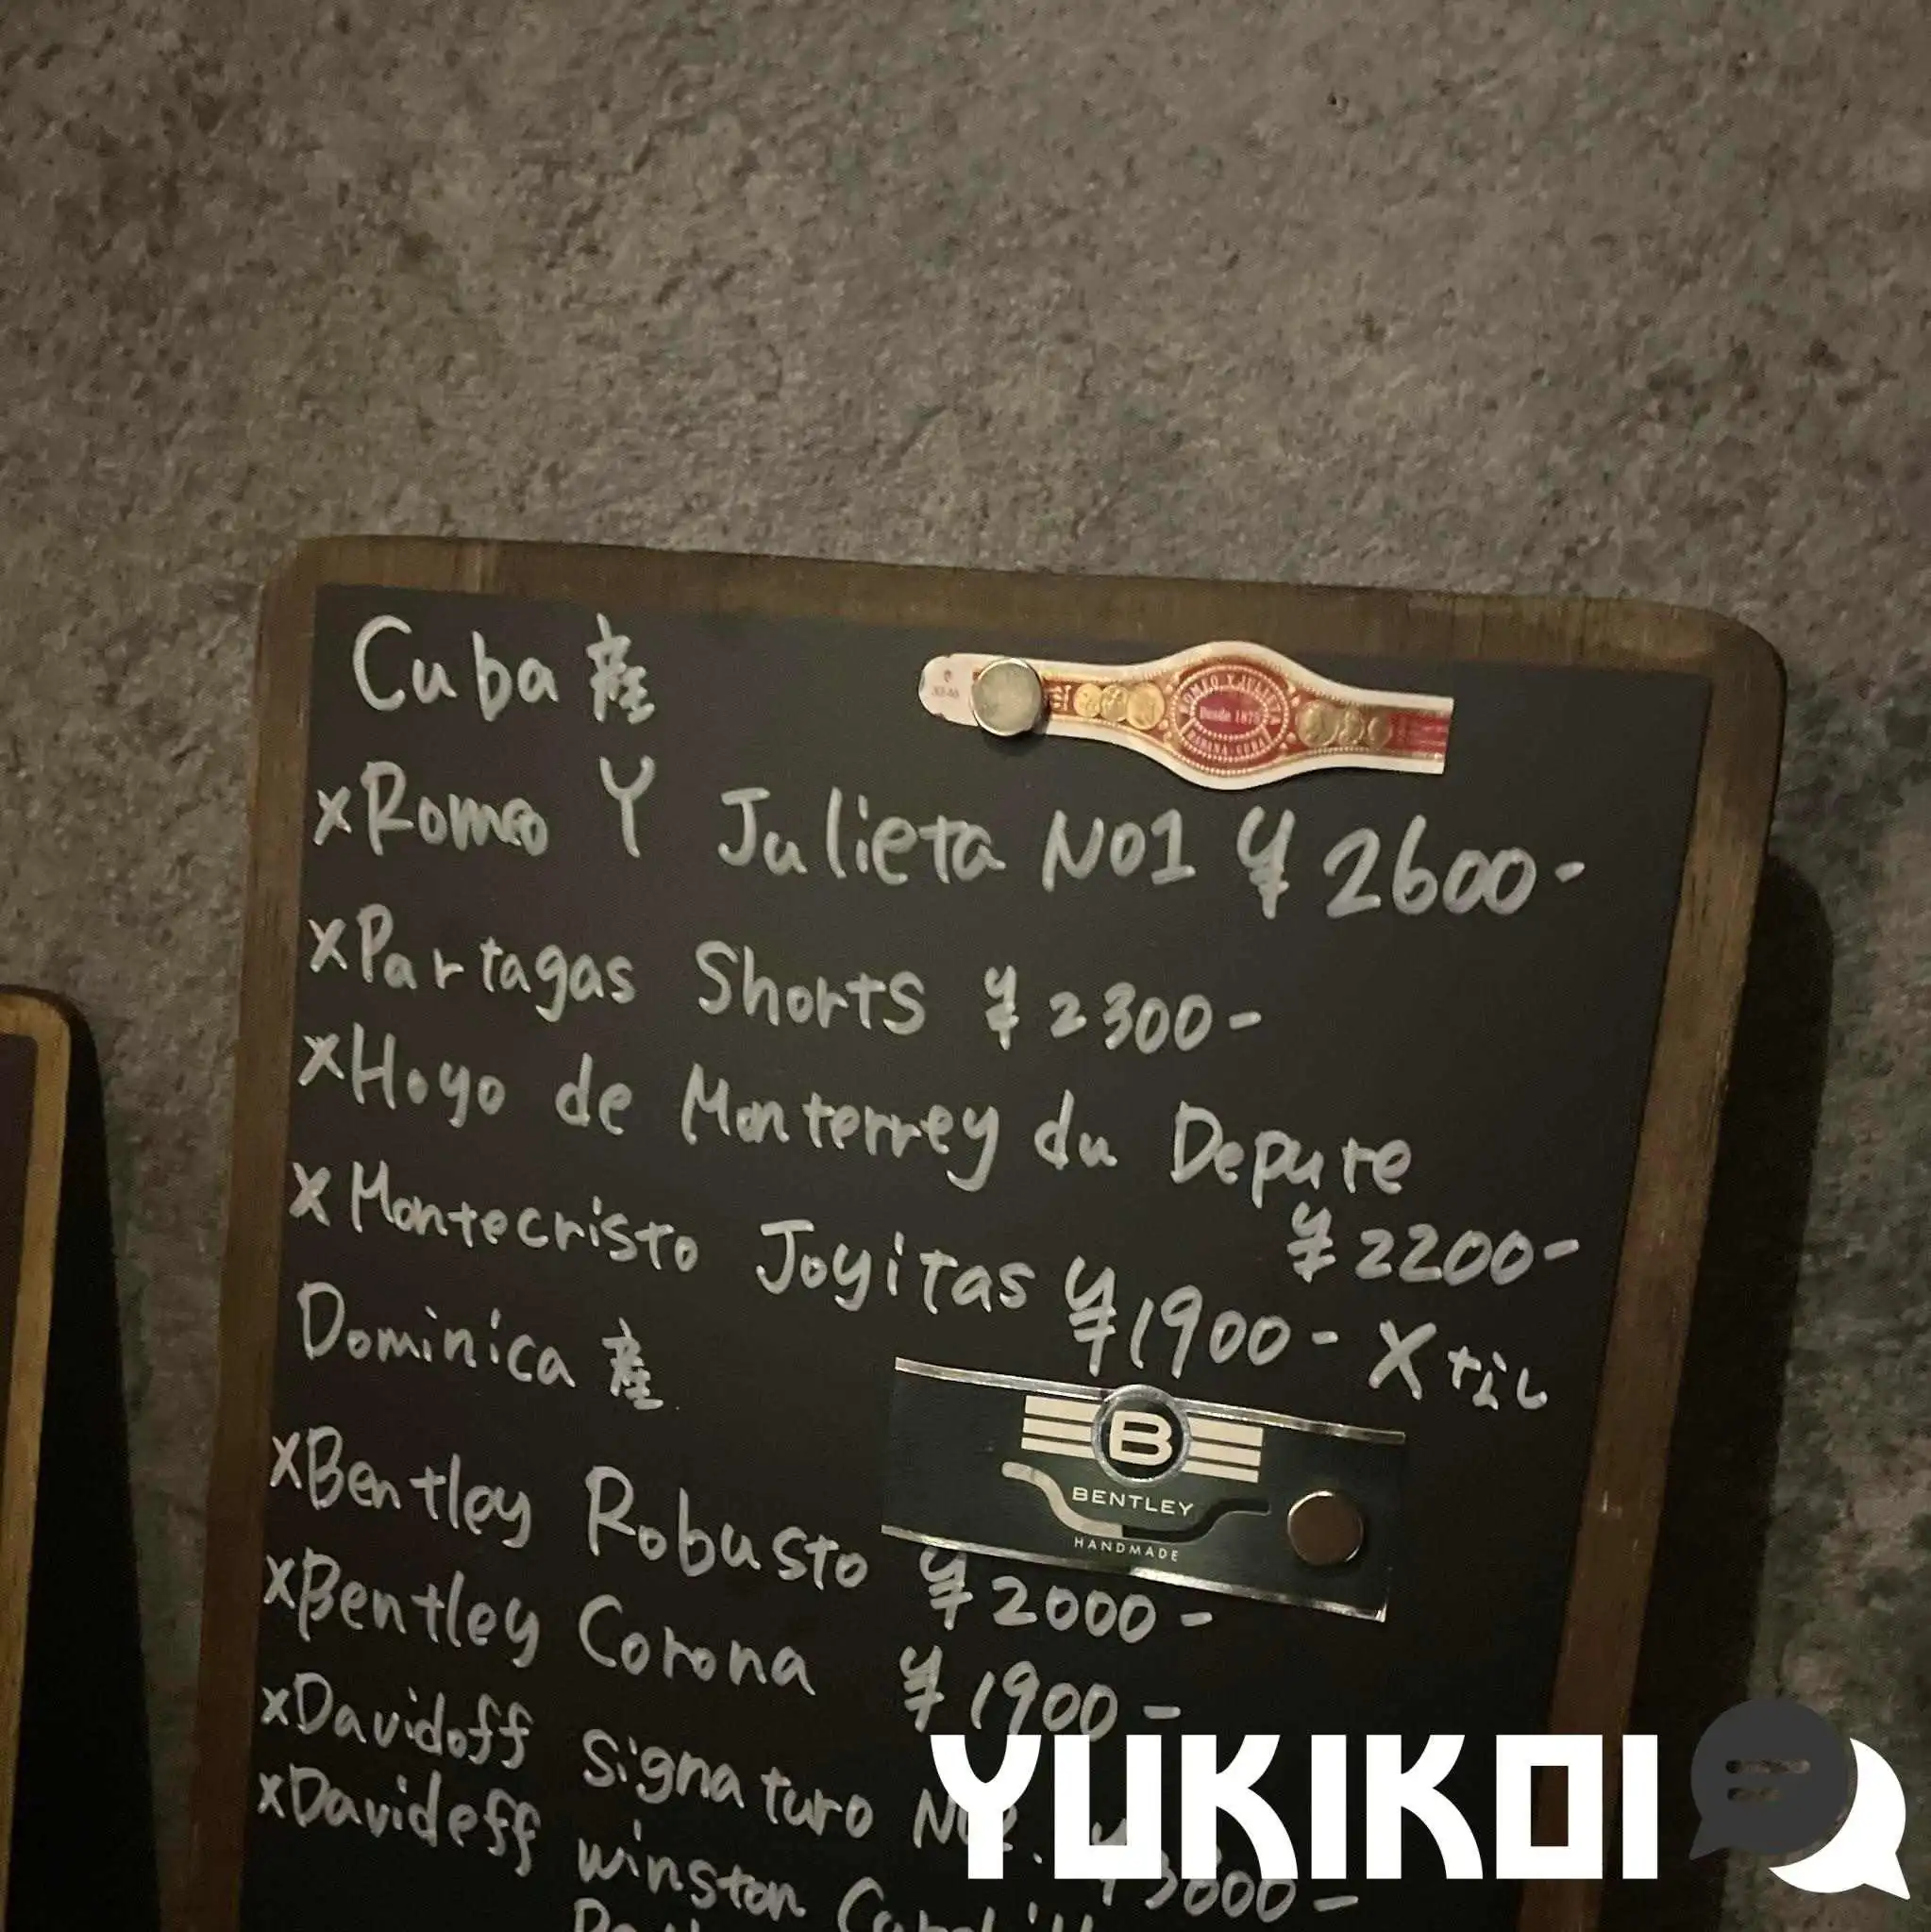 Cuba産
ROMEO Y JULIETA
Desde 1875
HABANA, CUBA
xRomeo Y Julieta No1 ¥2600-
xPartagas Shorts ¥2300-
xHoyo de Monterrey du Depute
¥2200-
xMontecristo Joyitas ¥1900- X なし
Dominica産
B
BENTLEY
HANDMADE
xBentley Robusto ¥2000-
xBentley Corona ¥1900-
xDavidoff Signaturo
xDavideff winston
YUKIKOI